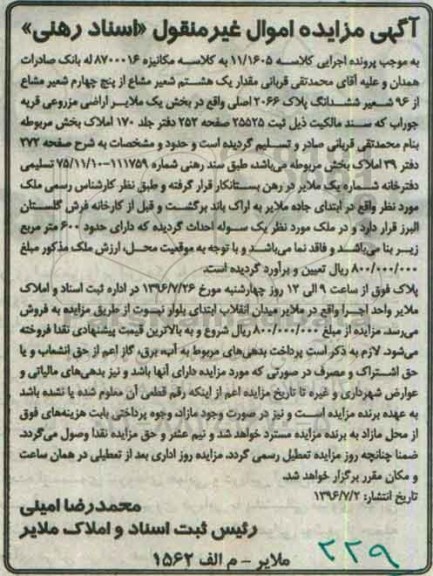 آگهی مزایده اموال غیرمنقول «اسناد رهنی»
به موجب پرونده اجرایی کلاسه ۱۱/۱۶۰۵ به کلاسه مکانیزه ۸۷۰۰۰۱۶ له بانک صادرات
همدان و علیه آقای محمدتقی قربانی مقدار یک هشتم شعیر مشاع از پنج چهارم شعیر مشاع
از ۹۶ شعیر ششدانگ پلاک ۲۰۶۶ اصلی واقع در بخش یک ملایر اراضی مزروعی قریه
جوراب که سند مالکیت ذیل ثبت ۲۵۵۲۵ صفحه ۲۵۲ دفتر جلد ۱۷۰ املاک بخش مربوطه
بنام محمدتقی قربانی صادر و تسلیم گردیده است و حدود و مشخصات به شرح صفحه ۲۷۲
دفتر ۳۹ املاک بخش مربوطه می‌باشد، طبق سند رهنی شماره ۱۱۱۷۵۹-۷۵/۱۱/۱۰ تسلیمی
دفترخانه شماره یک ملایر در رهن بستانکار قرار گرفته و طبق نظر کارشناس رسمی ملک
مورد نظر واقع در ابتدای جاده ملایر به اراک باند برگشت و قبل از کارخانه فرش گلستان
البرز قرار دارد و در ملک مورد نظر یک سوله احداث گردیده که دارای حدود ۶۰۰ متر مربع
زیر بنا می‌باشد و فاقد نما می‌باشد و با توجه به موقعیت محل، ارزش ملک مذکور مبلغ
۸۰۰/۰۰۰/۰۰۰ ریال تعیین و برآورد گردیده است.
پلاک فوق از ساعت ۹ الی ۱۲ روز چهارشنبه مورخ ۱۳۹۶/۷/۲۶ در اداره ثبت اسناد و املاک
ملایر واحد اجرا واقع در ملایر میدان انقلاب ابتدای بلوار نبوت از طریق مزایده به فروش
می‌رسد. مزایده از مبلغ ۸۰۰/۰۰۰/۰۰۰ ریال شروع و به بالاترین قیمت پیشنهادی نقدا فروخته
می‌شود. لازم به ذکر است پرداخت بدهی‌های مربوط به آب، برق، گاز اعم از حق انشعاب و یا
حق اشتراک و مصرف در صورتی که مورد مزایده دارای آنها باشد و نیز بدهی‌های مالیاتی و
عوارض شهرداری و غیره تا تاریخ مزایده اعم از اینکه رقم قطعی آن معلوم شده یا نشده باشد
به عهده برنده مزایده است و نیز در صورت وجود مازاد، وجوه پرداختی بابت هزینه‌های فوق
از محل مازاد به برنده مزایده مسترد خواهد شد و نیم عشر و حق مزایده نقدا وصول می‌گردد.
ضمنا چنانچه روز مزایده تعطیل رسمی گردد. مزایده روز اداری بعد از تعطیلی در همان ساعت
و مکان مقرر برگزار خواهد شد.
تاریخ انتشار: ۱۳۹۶/۷/۲
محمدرضا امینی
رئیس ثبت اسناد و املاک ملایر
ملایر - م الف ۱۵۶۲
۲۲۹